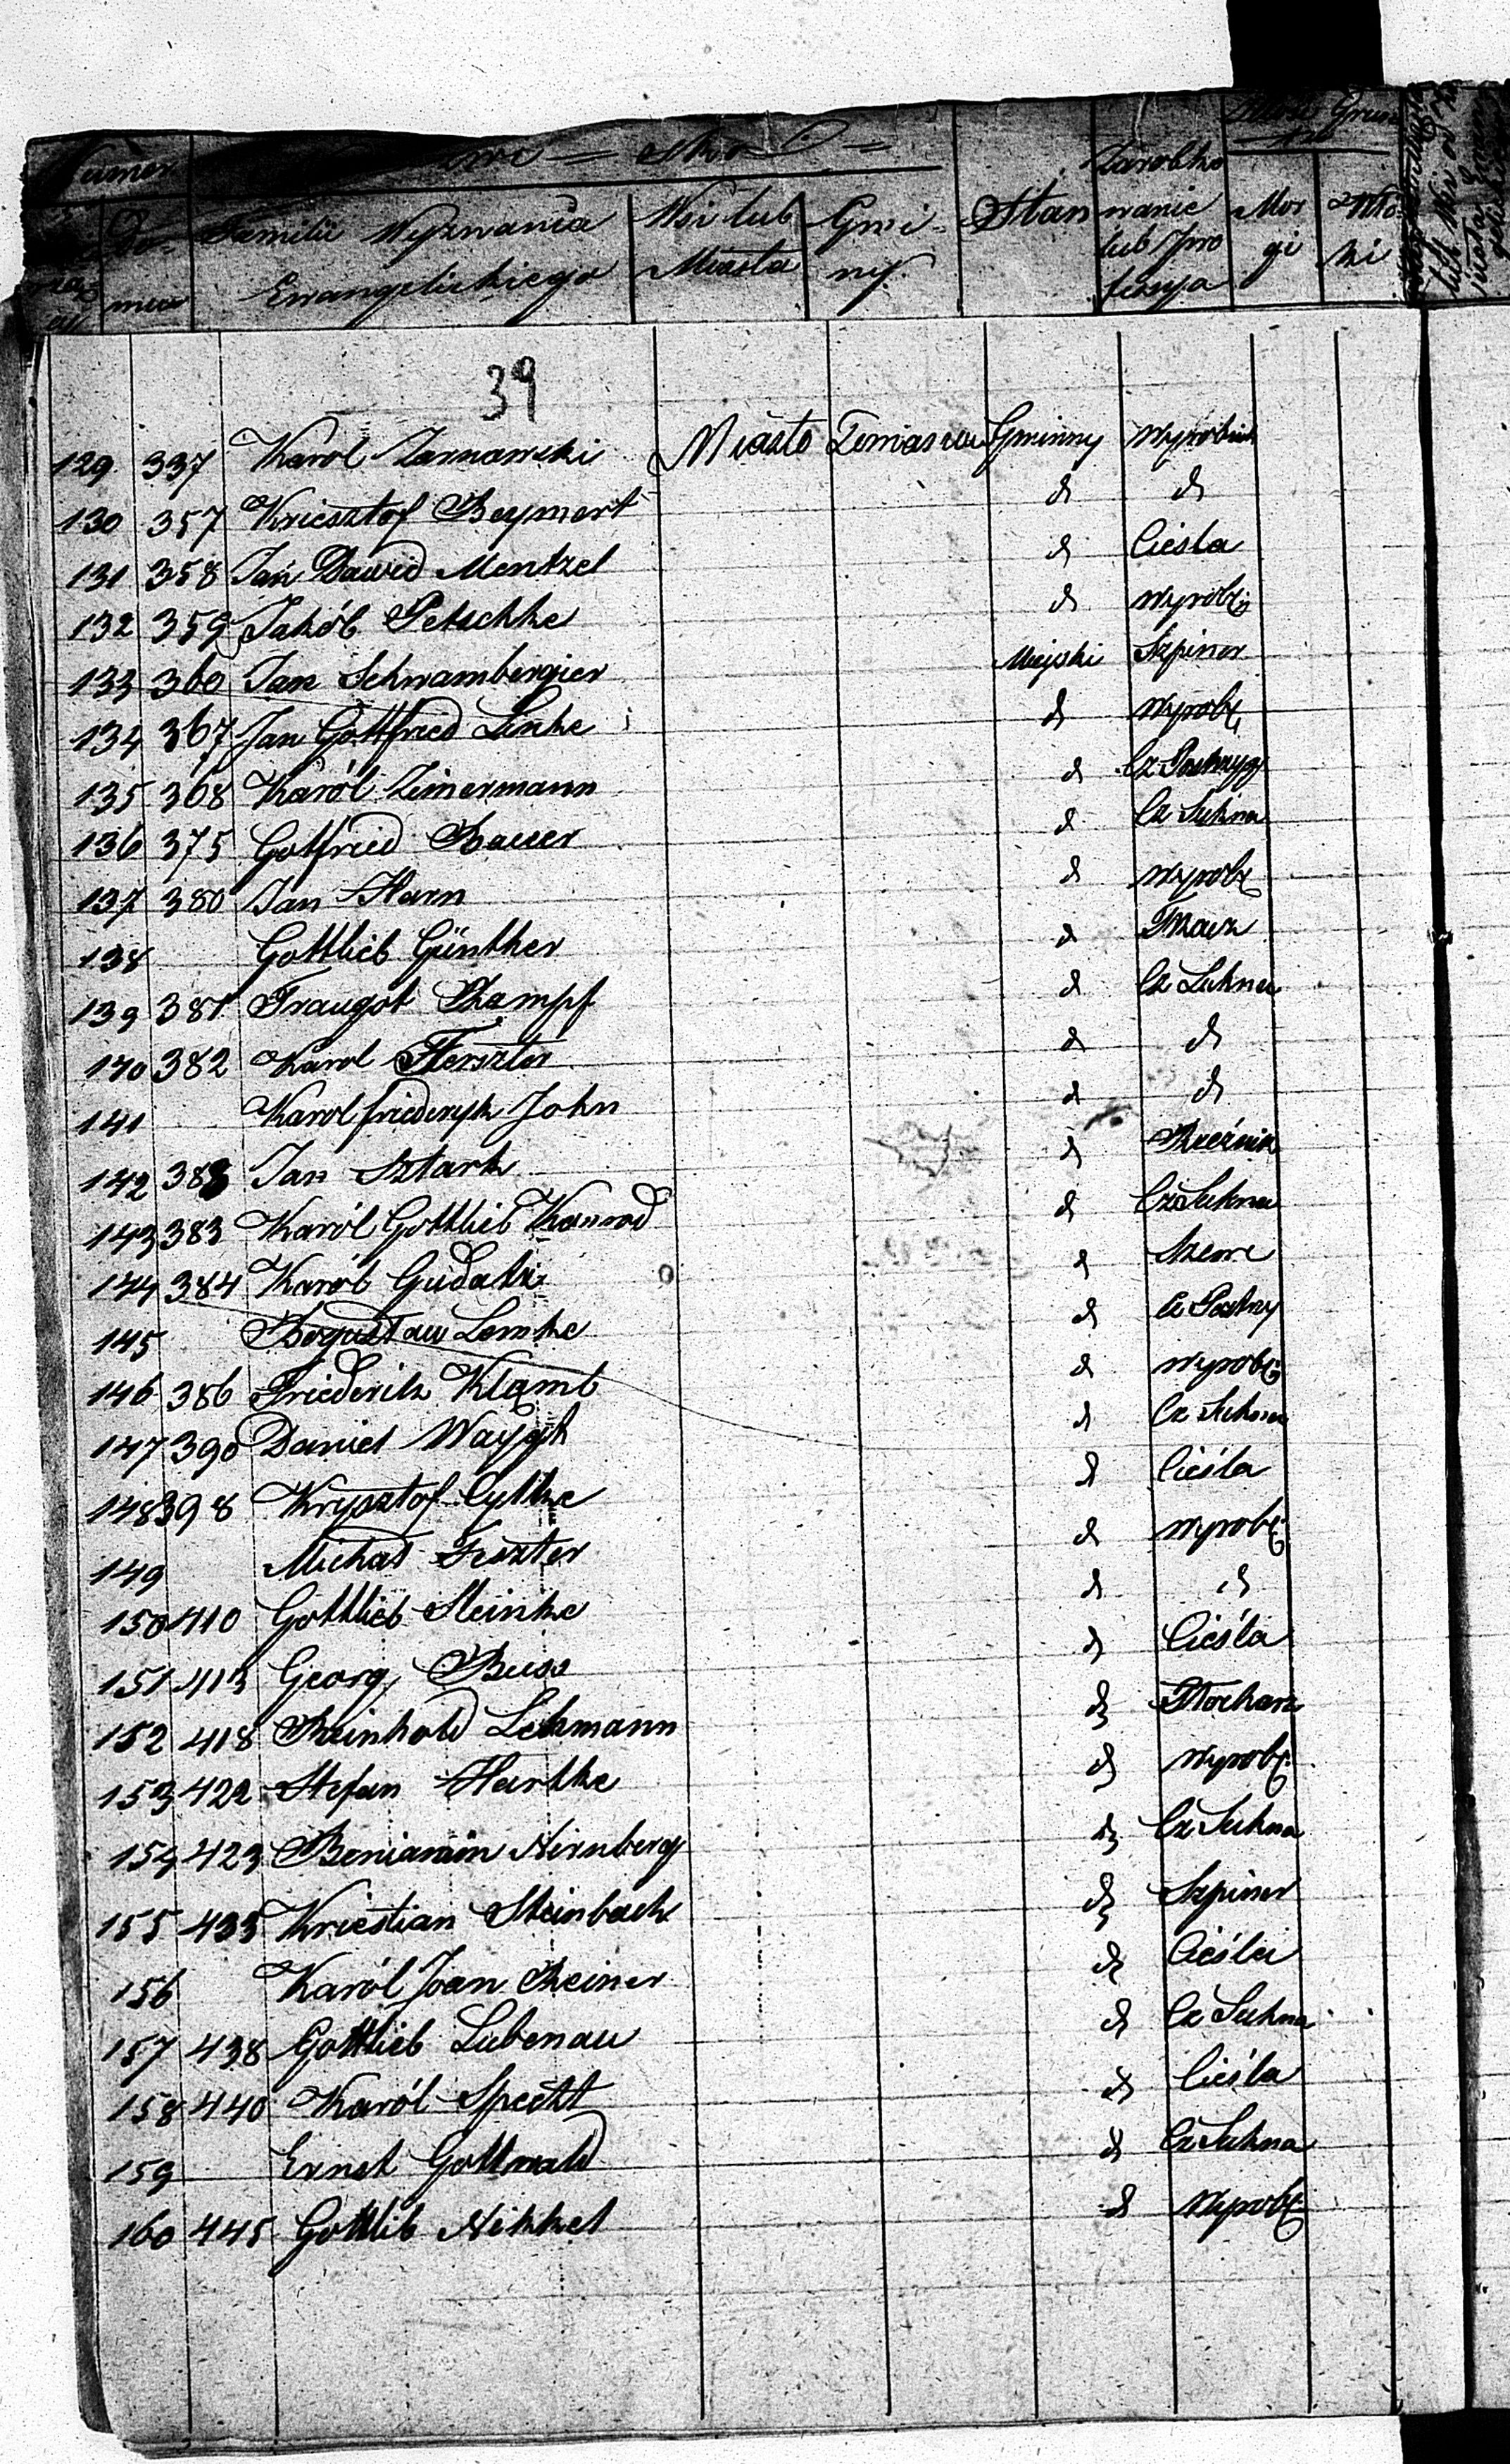 Numer
Familii Wyznania Ewangelickiego
Wsi lub Miasta
Gminy
Stan
Zarobkowanie lub profesya
Morgi
39
129 337 Karol Zarnawski Miasto Tomaszow Gminny Wyrobnik
130 357 Kriesztof Beymert d d
131 358 Jan Dawid Mentzel d Cieśla
132 359 Jakób Petschke d wyrob:
133 360 Jan Schwambergier Miejski Szpiner
134 367 Jan Gottfried Linke d wyrob:
135 368 Karól Zimermann d Cz Postrzyg
136 375 Gotfried Bauer d Cz Sukna
137 380 Jan Harn d wyrob
138 Gottlieb Günther d Tkacz
139 381 Traugot Kampf d Cz Sukna
140 382 Karol Ferszter d d
141 Karol friederyk John d d
142 388 Jan Sztark d Rzeźnik
143 383 Karól Gottlieb Konrad d Cz Sukna
144 384 Karól Gudatki d Szewc
145 Bogusław Lemke d Cz Postrzy
146 386 Friederik Klamb d wyrob:
147 390 Daniel Waygk d Cz Sukna
148 398 Krysztof Cylke d Cieśla
149 Michał Feszter d wyrob:
150 410 Gottlieb Steinke d d
151 413 Georg Buss d Cieśla
152 418 Reinhold Lehmann d Stochars
153 422 Stefan Hartke d wyrob:
154 423 Beniamin Nirnberg d Cz Sukna
155 435 Kriestian Steinbach d Szpiner
156 Karól Joan Reiner d Cieśla
157 438 Gottlieb Lubenau d Cz Sukna
158 440 Karól Specht d Cieśla
159 Ernst Gottwald d Cz Sukna
160 445 Gottlib Nikkel d Wyrob: